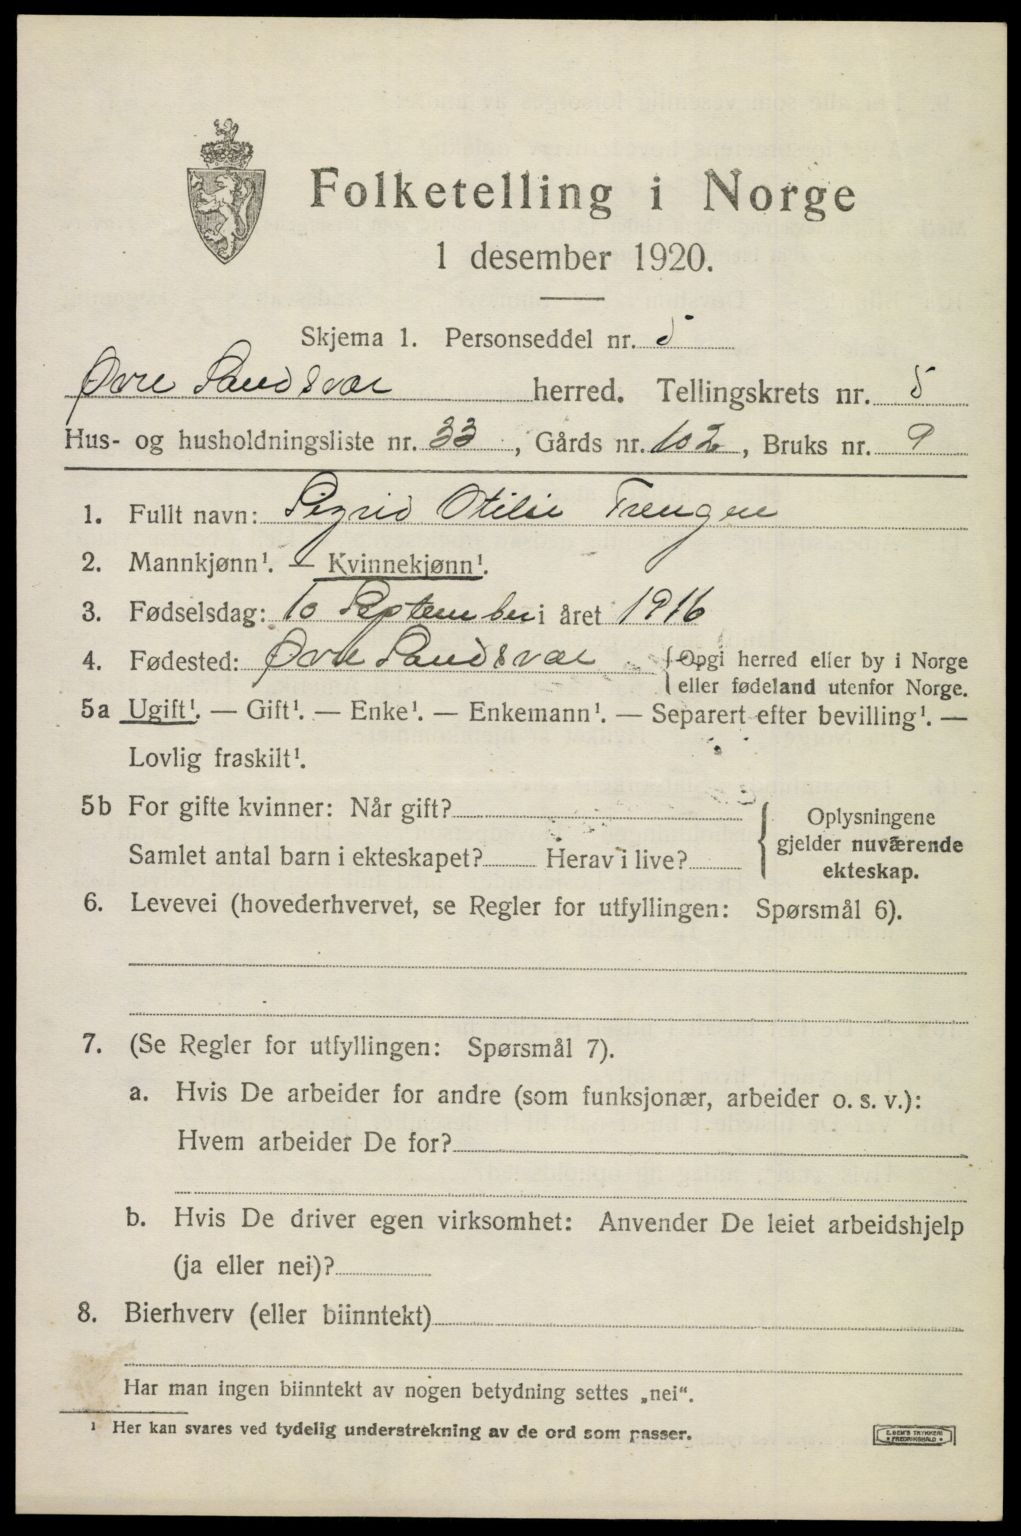 Folketelling i Norge
1 desember 1920.
Skjema 1. Personseddel nr. 5
Øvre Sandsvær herred. Tellingskrets nr. 5
Hus- og husholdningsliste nr. 33, Gårds nr. 102, Bruks nr. 9
1. Fullt navn: Sigrid Otilie Trengen
2. Mannkjønn¹. — Kvinnekjønn¹.
3. Fødselsdag: 10 September i året 1916
4. Fødested: Øvre Sandsvær {Opgi herred eller by i Norge
eller fødeland utenfor Norge.
5a Ugift¹. — Gift¹. — Enke¹. — Enkemann¹. — Separert efter bevilling¹. —
Lovlig fraskilt¹.
5b For gifte kvinner: Når gift?
Samlet antal barn i ekteskapet? Herav i live?
{Oplysningene
gjelder nuværende
ekteskap.
6. Levevei (hovederhvervet, se Regler for utfyllingen: Spørsmål 6).
7. (Se Regler for utfyllingen: Spørsmål 7).
a. Hvis De arbeider for andre (som funksjonær, arbeider o. s. v.):
Hvem arbeider De for?
b. Hvis De driver egen virksomhet: Anvender De leiet arbeidshjelp
(ja eller nei)?
8. Bierhverv (eller biinntekt)
Har man ingen biinntekt av nogen betydning settes „nei“.
¹ Her kan svares ved tydelig understrekning av de ord som passer.
E. SEM'S TRYKKERI
FREDRIKSHALD